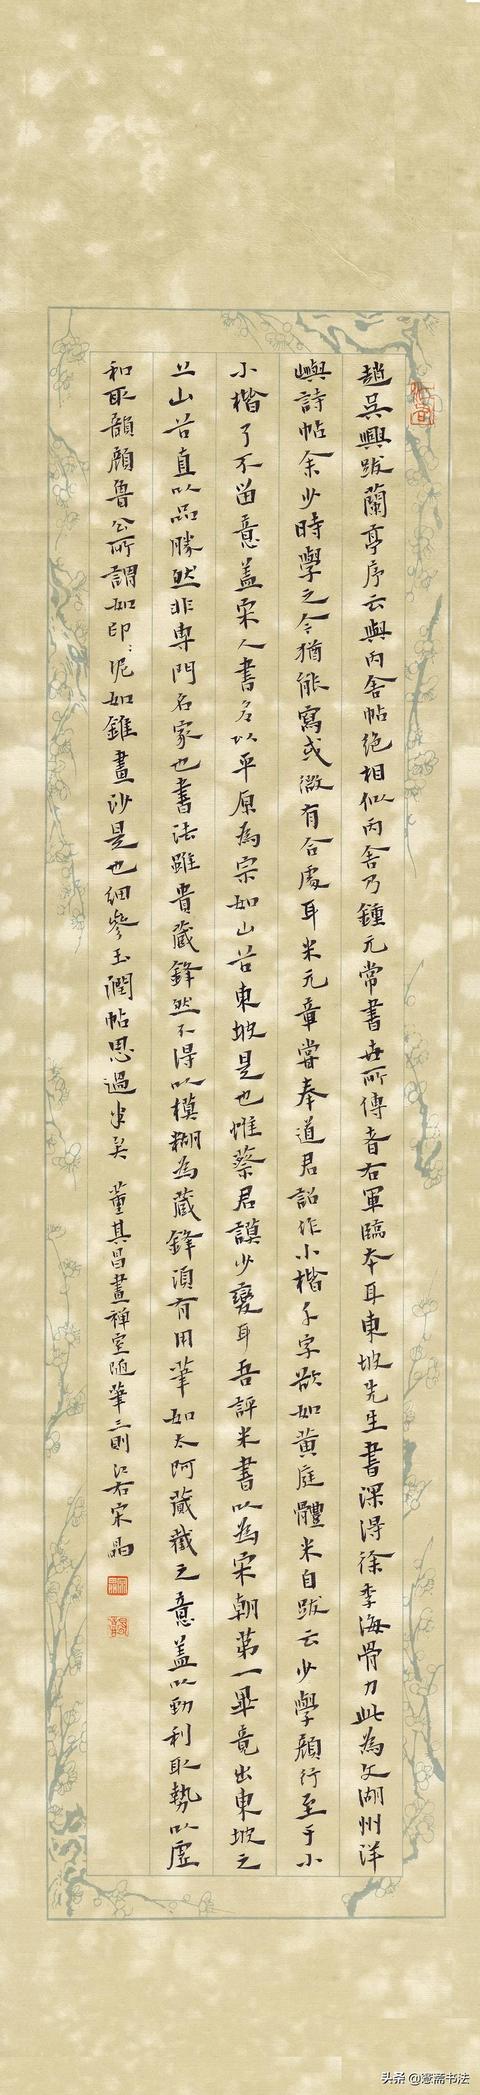 趙吳興跋蘭亭序云與丙舍帖絶相似丙舍乃鍾元常書世所傳者右軍臨本耳東坡先生書深得徐季海骨力此為文湖州洋
嶼詩帖余少時學之今猶能寫或微有合處耳米元章嘗奉道君詔作小楷千字欲如黄庭體米自跋云少學顔行至于小
小楷了不留意蓋宋人書多以平原為宗如山谷東坡是也惟蔡君謨少變耳吾評米書以為宋朝第一畢竟出東坡之
上山谷直以品勝然非專門名家也書法雖貴藏鋒然不得以模糊為藏鋒須有用筆如太阿藏截之意蓋以勁利取勢以虛
和取韻顔魯公所謂如印印泥如錐畫沙是也細參玉潤帖思過半矣 董其昌畫禪室隨筆三則江右宋晶
头条 @蹇斋书法